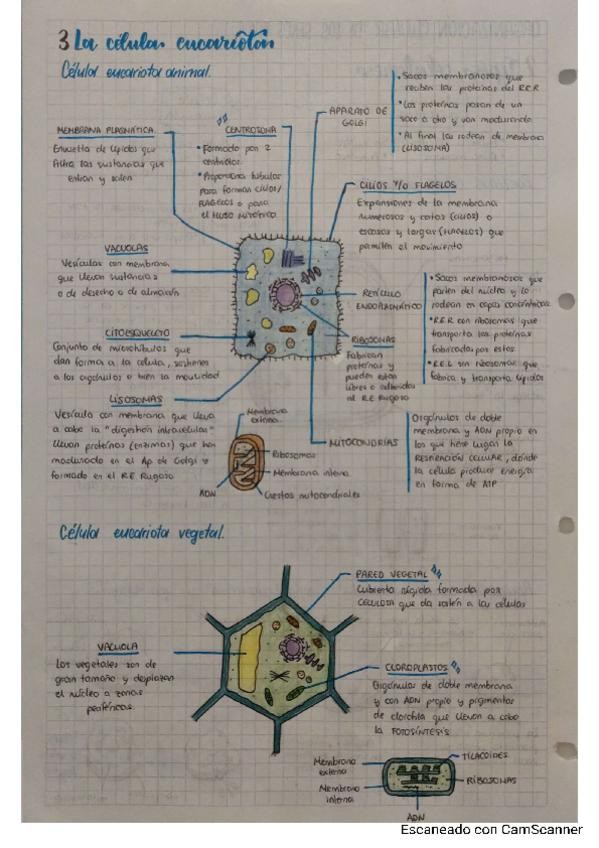 3 La célula eucariota
Célula eucariota animal.
MEMBRANA PLASMÁTICA
Envuelta de lípidos que
filtra las sustancias que
entran y salen
CENTROSOMA
• Formado por 2
centriolos.
• Proporciona túbulos
para formar CILIOS/
FLAGELOS o para
el HUSO MITÓTICO
APARATO DE
GOLGI
• Sacos membranosos que
reciben las proteínas del R.E.R
• Las proteínas pasan de un
saco a otro y van madurando
• Al final las rodean de membrana
(LISOSOMA)
CILIOS Y/O FLAGELOS
Expansiones de la membrana
numerosos y cortos (CILIOS) o
escasos y largos (FLAGELOS) que
permiten el movimiento
VACUOLAS
Vesículas con membrana
que llevan sustancias
o de desecho o de almacén
RETÍCULO
ENDOPLASMÁTICO
• Sacos membranosos que
parten del núcleo y lo
rodean en capas concéntricas
• R.E.R con ribosomas que
transporta las proteínas
fabricadas por estos
• R.E.L sin ribosomas que
fabrica y transporta lípidos
CITOESQUELETO
Conjunto de microtúbulos que
dan forma a la célula, sostienen
a los orgánulos o bien la movilidad
RIBOSOMAS
Fabrican
proteínas y
pueden estar
libres o adheridos
al R.E Rugoso
LISOSOMAS
Vesícula con membrana que lleva
a cabo la "digestión intracelular"
llevan proteínas (enzimas) que han
madurado en el Ap de Golgi y
formado en el R.E. Rugoso
Membrana
externa
Ribosomas
Membrana interna
Crestas mitocondriales
ADN
MITOCONDRIAS
Orgánulos de doble
membrana y ADN propio en
los que tiene lugar la
RESPIRACIÓN CELULAR, donde
la célula produce energía
en forma de ATP
Célula eucariota vegetal.
PARED VEGETAL
Cubierta rígida formada por
CELULOSA que da sostén a las células
VACUOLA
Los vegetales son de
gran tamaño y desplazan
el núcleo a zonas
periféricas.
CLOROPLASTOS
Orgánulos de doble membrana
y con ADN propio y pigmentos
de clorofila que llevan a cabo
la FOTOSÍNTESIS
Membrana
externa
Membrana
interna
TILACOIDES
RIBOSOMAS
ADN
Escaneado con CamScanner